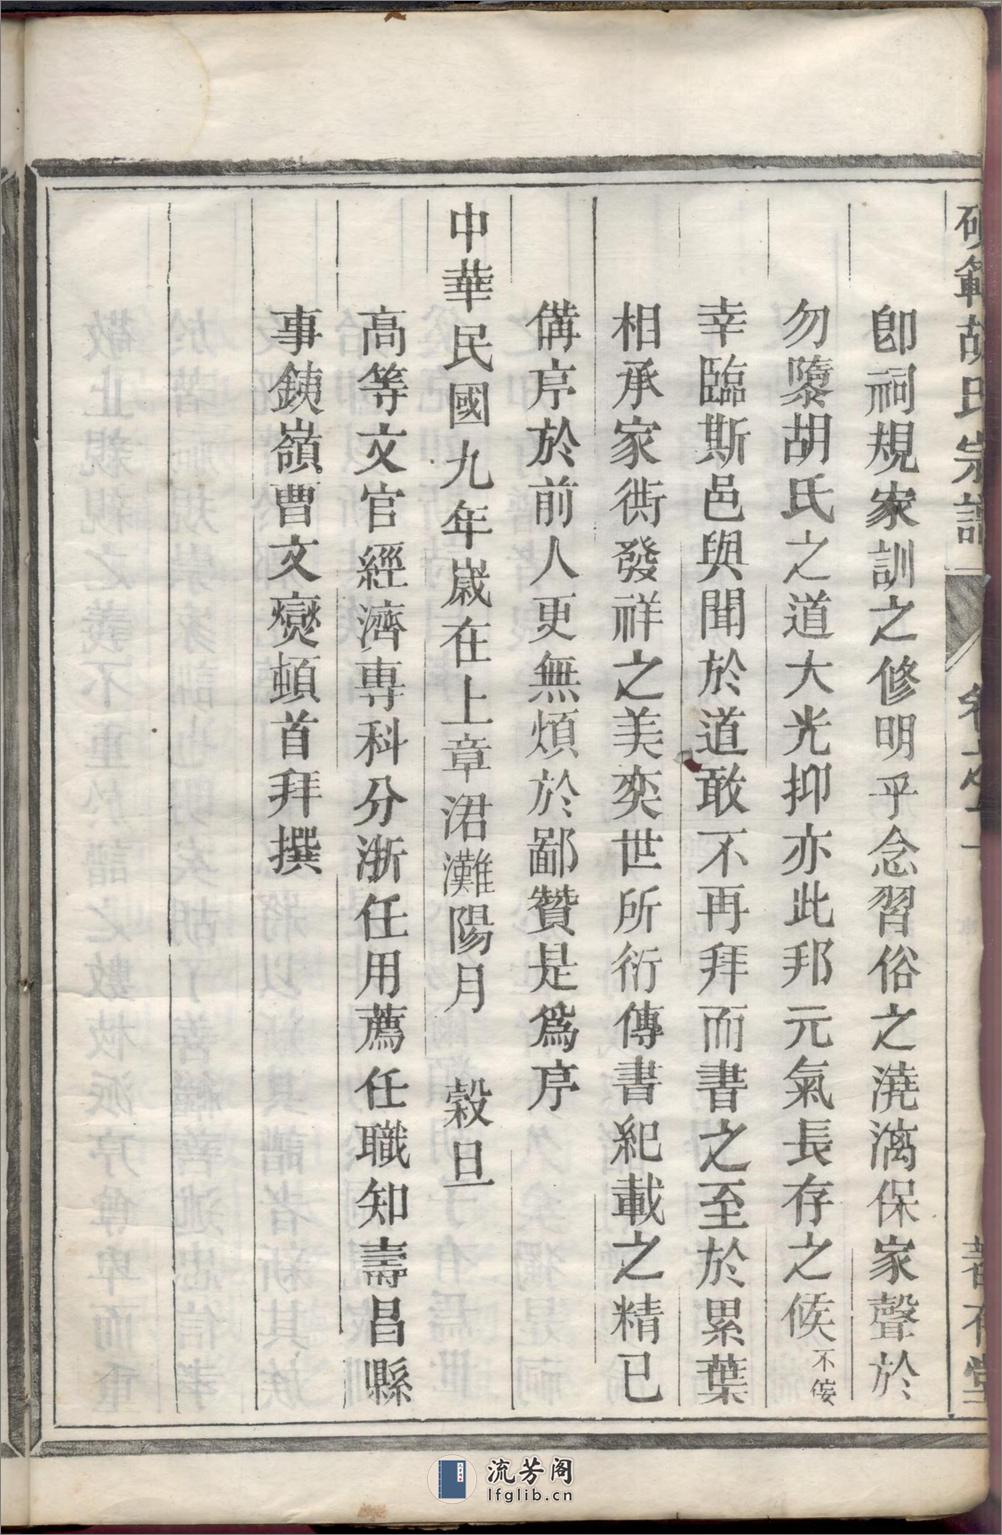 範胡氏宗譜
卽祠規家訓之修明乎念習俗之澆漓保家聲於
勿墮胡氏之道大光抑亦此邦元氣長存之候不佞
幸臨斯邑與聞於道敢不再拜而書之至於累葉
相承家衖發祥之美奕世所衍傳書紀載之精已
備序於前人更無煩於鄙贊是爲序
中華民國九年歲在上章涒灘陽月 穀旦
高等文官經濟專科分浙任用薦任職知壽昌縣
事銕嶺曹文燮頓首拜撰
流芳阁
lfglib.cn